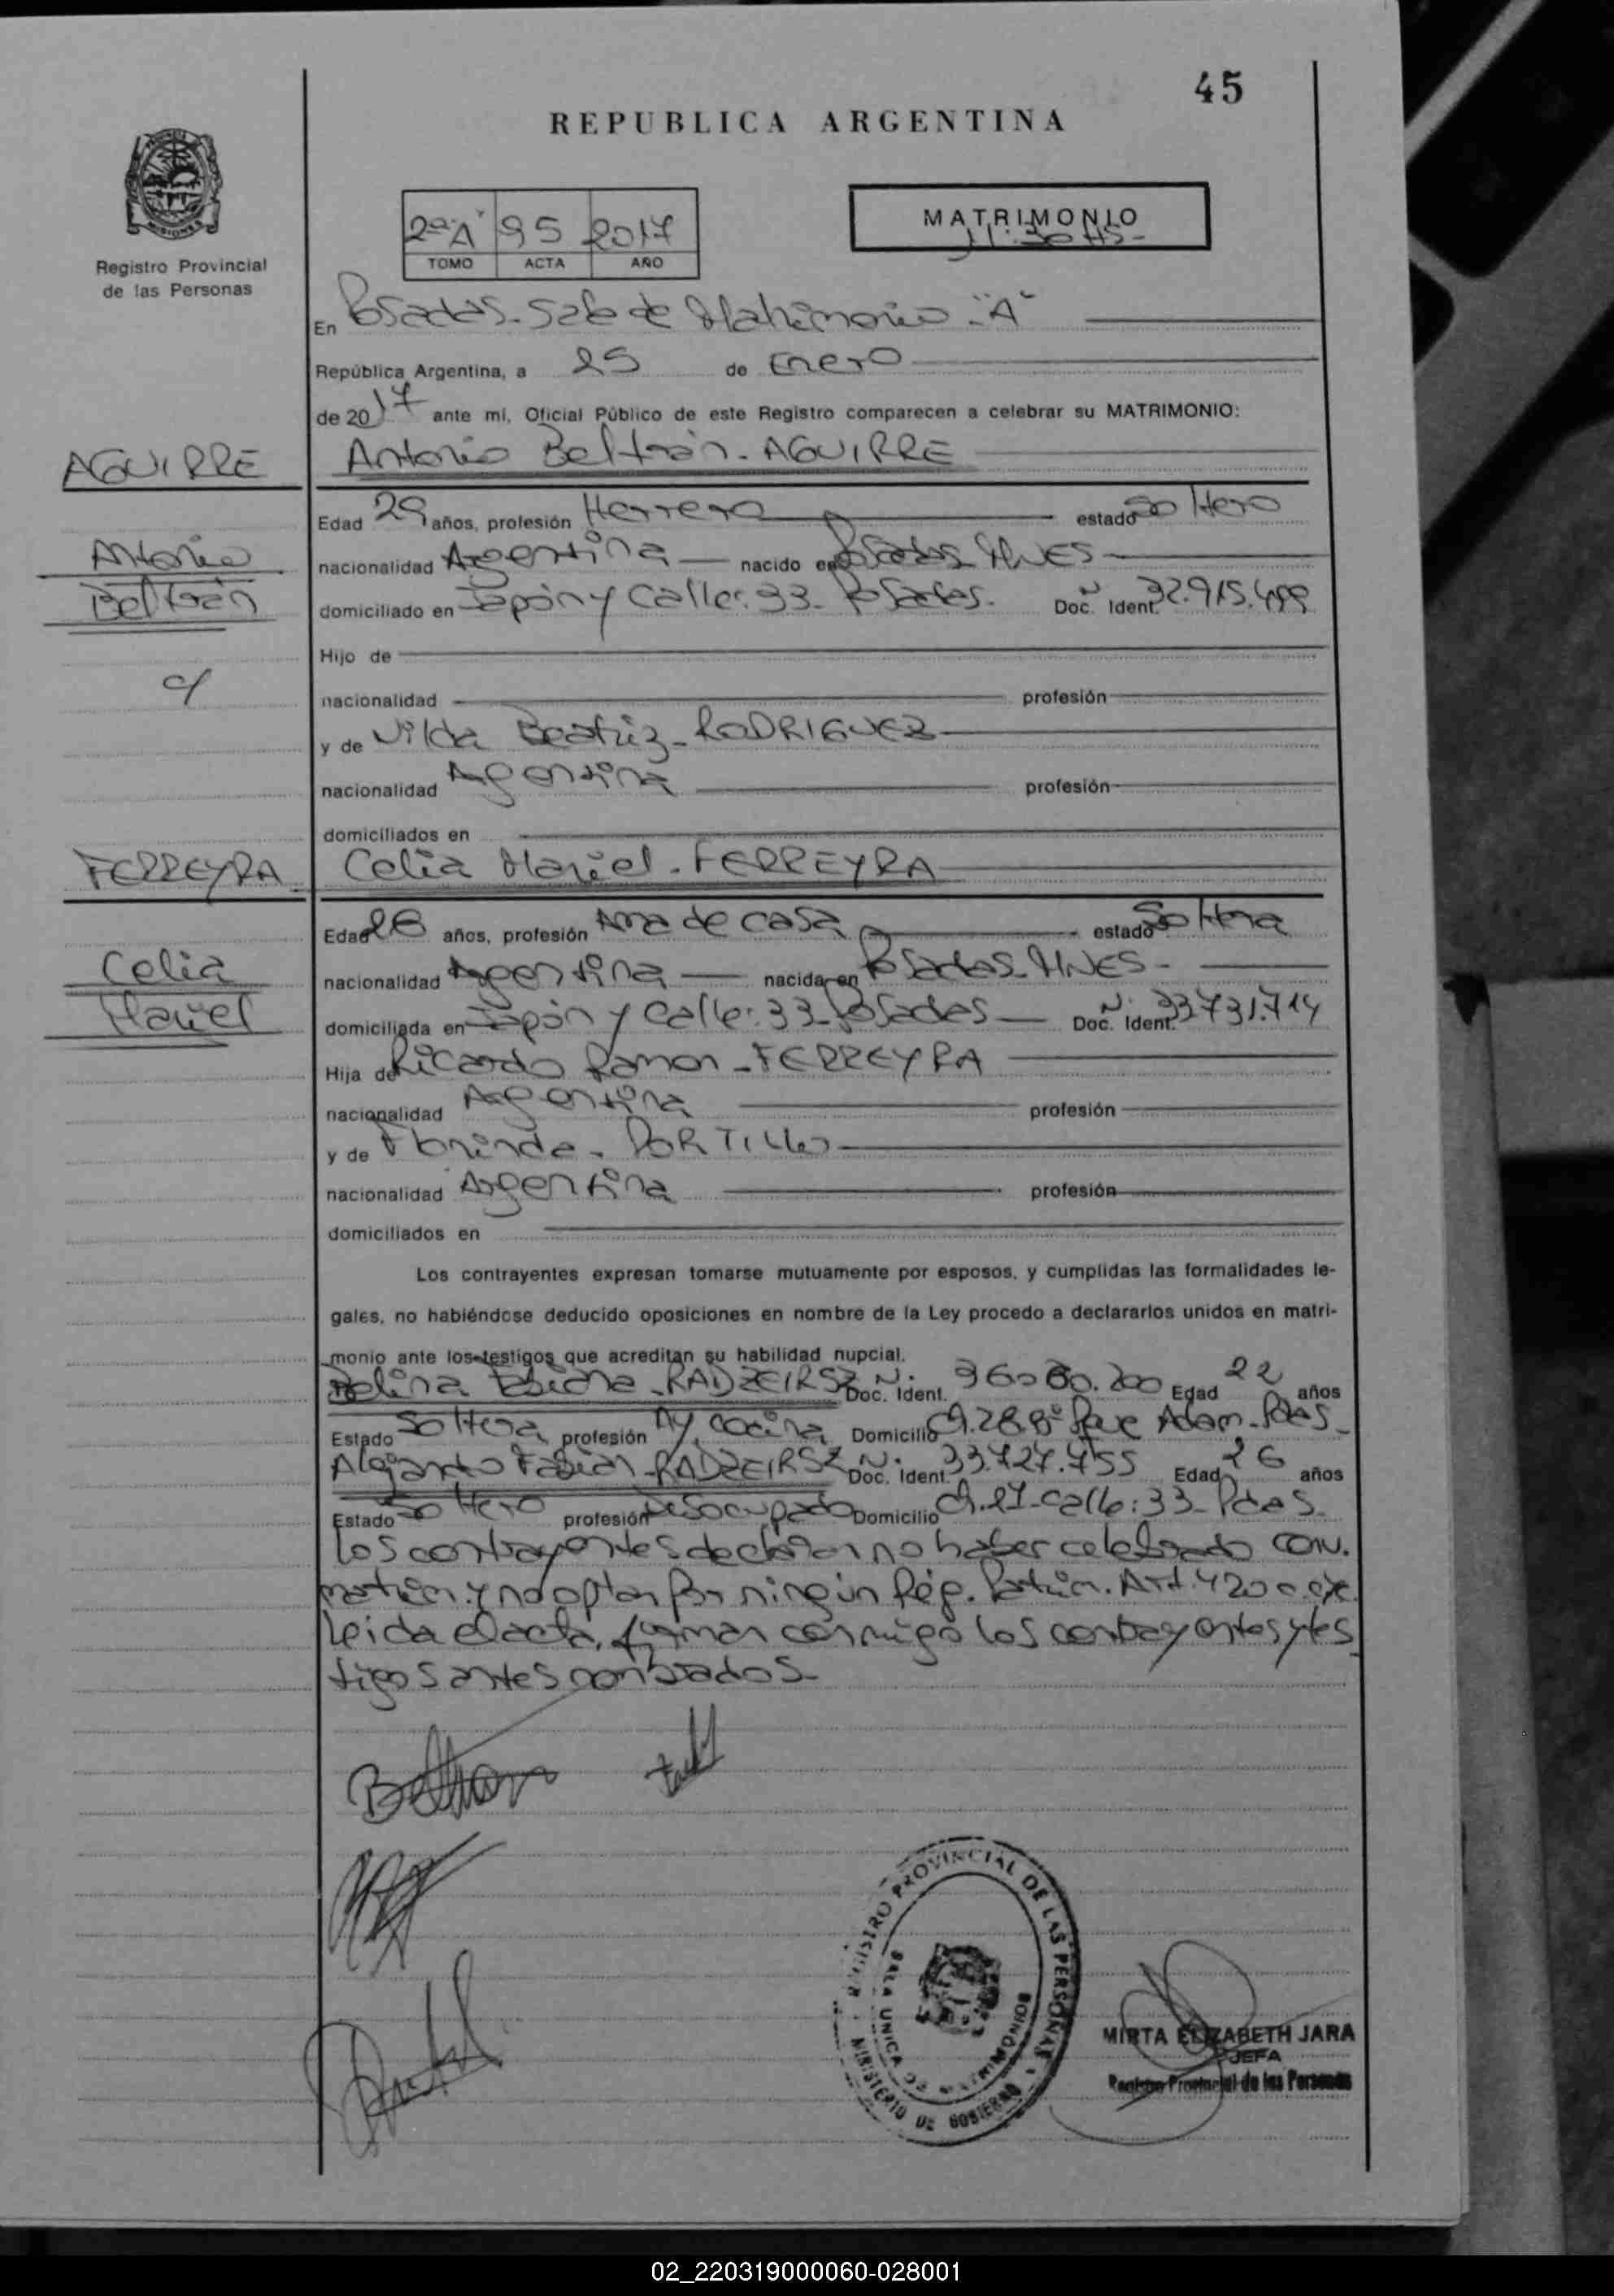 45
REPUBLICA ARGENTINA
2ª "A" 95 2017
TOMO ACTA AÑO
MATRIMONIO
11:30 HS-
Registro Provincial
de las Personas
En Posadas-Sala de Matrimonio-"A"
República Argentina, a 25 de Enero
de 2017 ante mi, Oficial Público de este Registro comparecen a celebrar su MATRIMONIO:
AGUIRRE
Antonio Beltrán-AGUIRRE
Antonio
Beltrán
c/
Edad 29 años, profesión Herrero estado Soltero
nacionalidad Argentina nacido en Posadas Mnes
domiciliado en Japón y Calle: 33-Posadas- Doc. Ident. Nº 32.915.499
Hijo de
nacionalidad profesión
y de Nilda Beatriz-RODRIGUEZ
nacionalidad Argentina profesión
domiciliados en
FERREYRA
Celia Mariel-FERREYRA
Celia
Mariel
Edad 28 años, profesión Ama de casa estado Soltera
nacionalidad Argentina nacida en Posadas-Mnes-
domiciliada en Japón y Calle: 33-Posadas Doc. Ident. Nº 33.731.714
Hija de Ricardo Ramon-FERREYRA
nacionalidad Argentina profesión
y de Florinda-PORTILLO
nacionalidad Argentina profesión
domiciliados en
Los contrayentes expresan tomarse mutuamente por esposos, y cumplidas las formalidades le-
gales, no habiéndose deducido oposiciones en nombre de la Ley procedo a declararlos unidos en matri-
monio ante los testigos que acreditan su habilidad nupcial.
Belina Fabiana-RADZEIRSZ Doc. Ident. Nº 36.060.200 Edad 22 años
Estado Soltera profesión Ay. cocina Domicilio Ch. 288- Adam-Pdas-
Alejandro Fabián-RADZEIRSZ Doc. Ident. Nº 33.727.455 Edad 26 años
Estado Soltero profesión Desocupado Domicilio Ch. 27-Calle: 33-Pdas-
Los contrayentes declaran no haber celebrado conv.
matrim. y no optar por ningún Rég. Patrim. Art. 420
Leida el acta, firman conmigo los contrayentes y tes
tigos antes nombrados-
Beltran
REGISTRO PROVINCIAL DE LAS PERSONAS
SALA UNICA DE MATRIMONIOS
MINISTERIO DE GOBIERNO
MIRTA ELIZABETH JARA
JEFA
Registro Provincial de las Personas
02_220319000060-028001